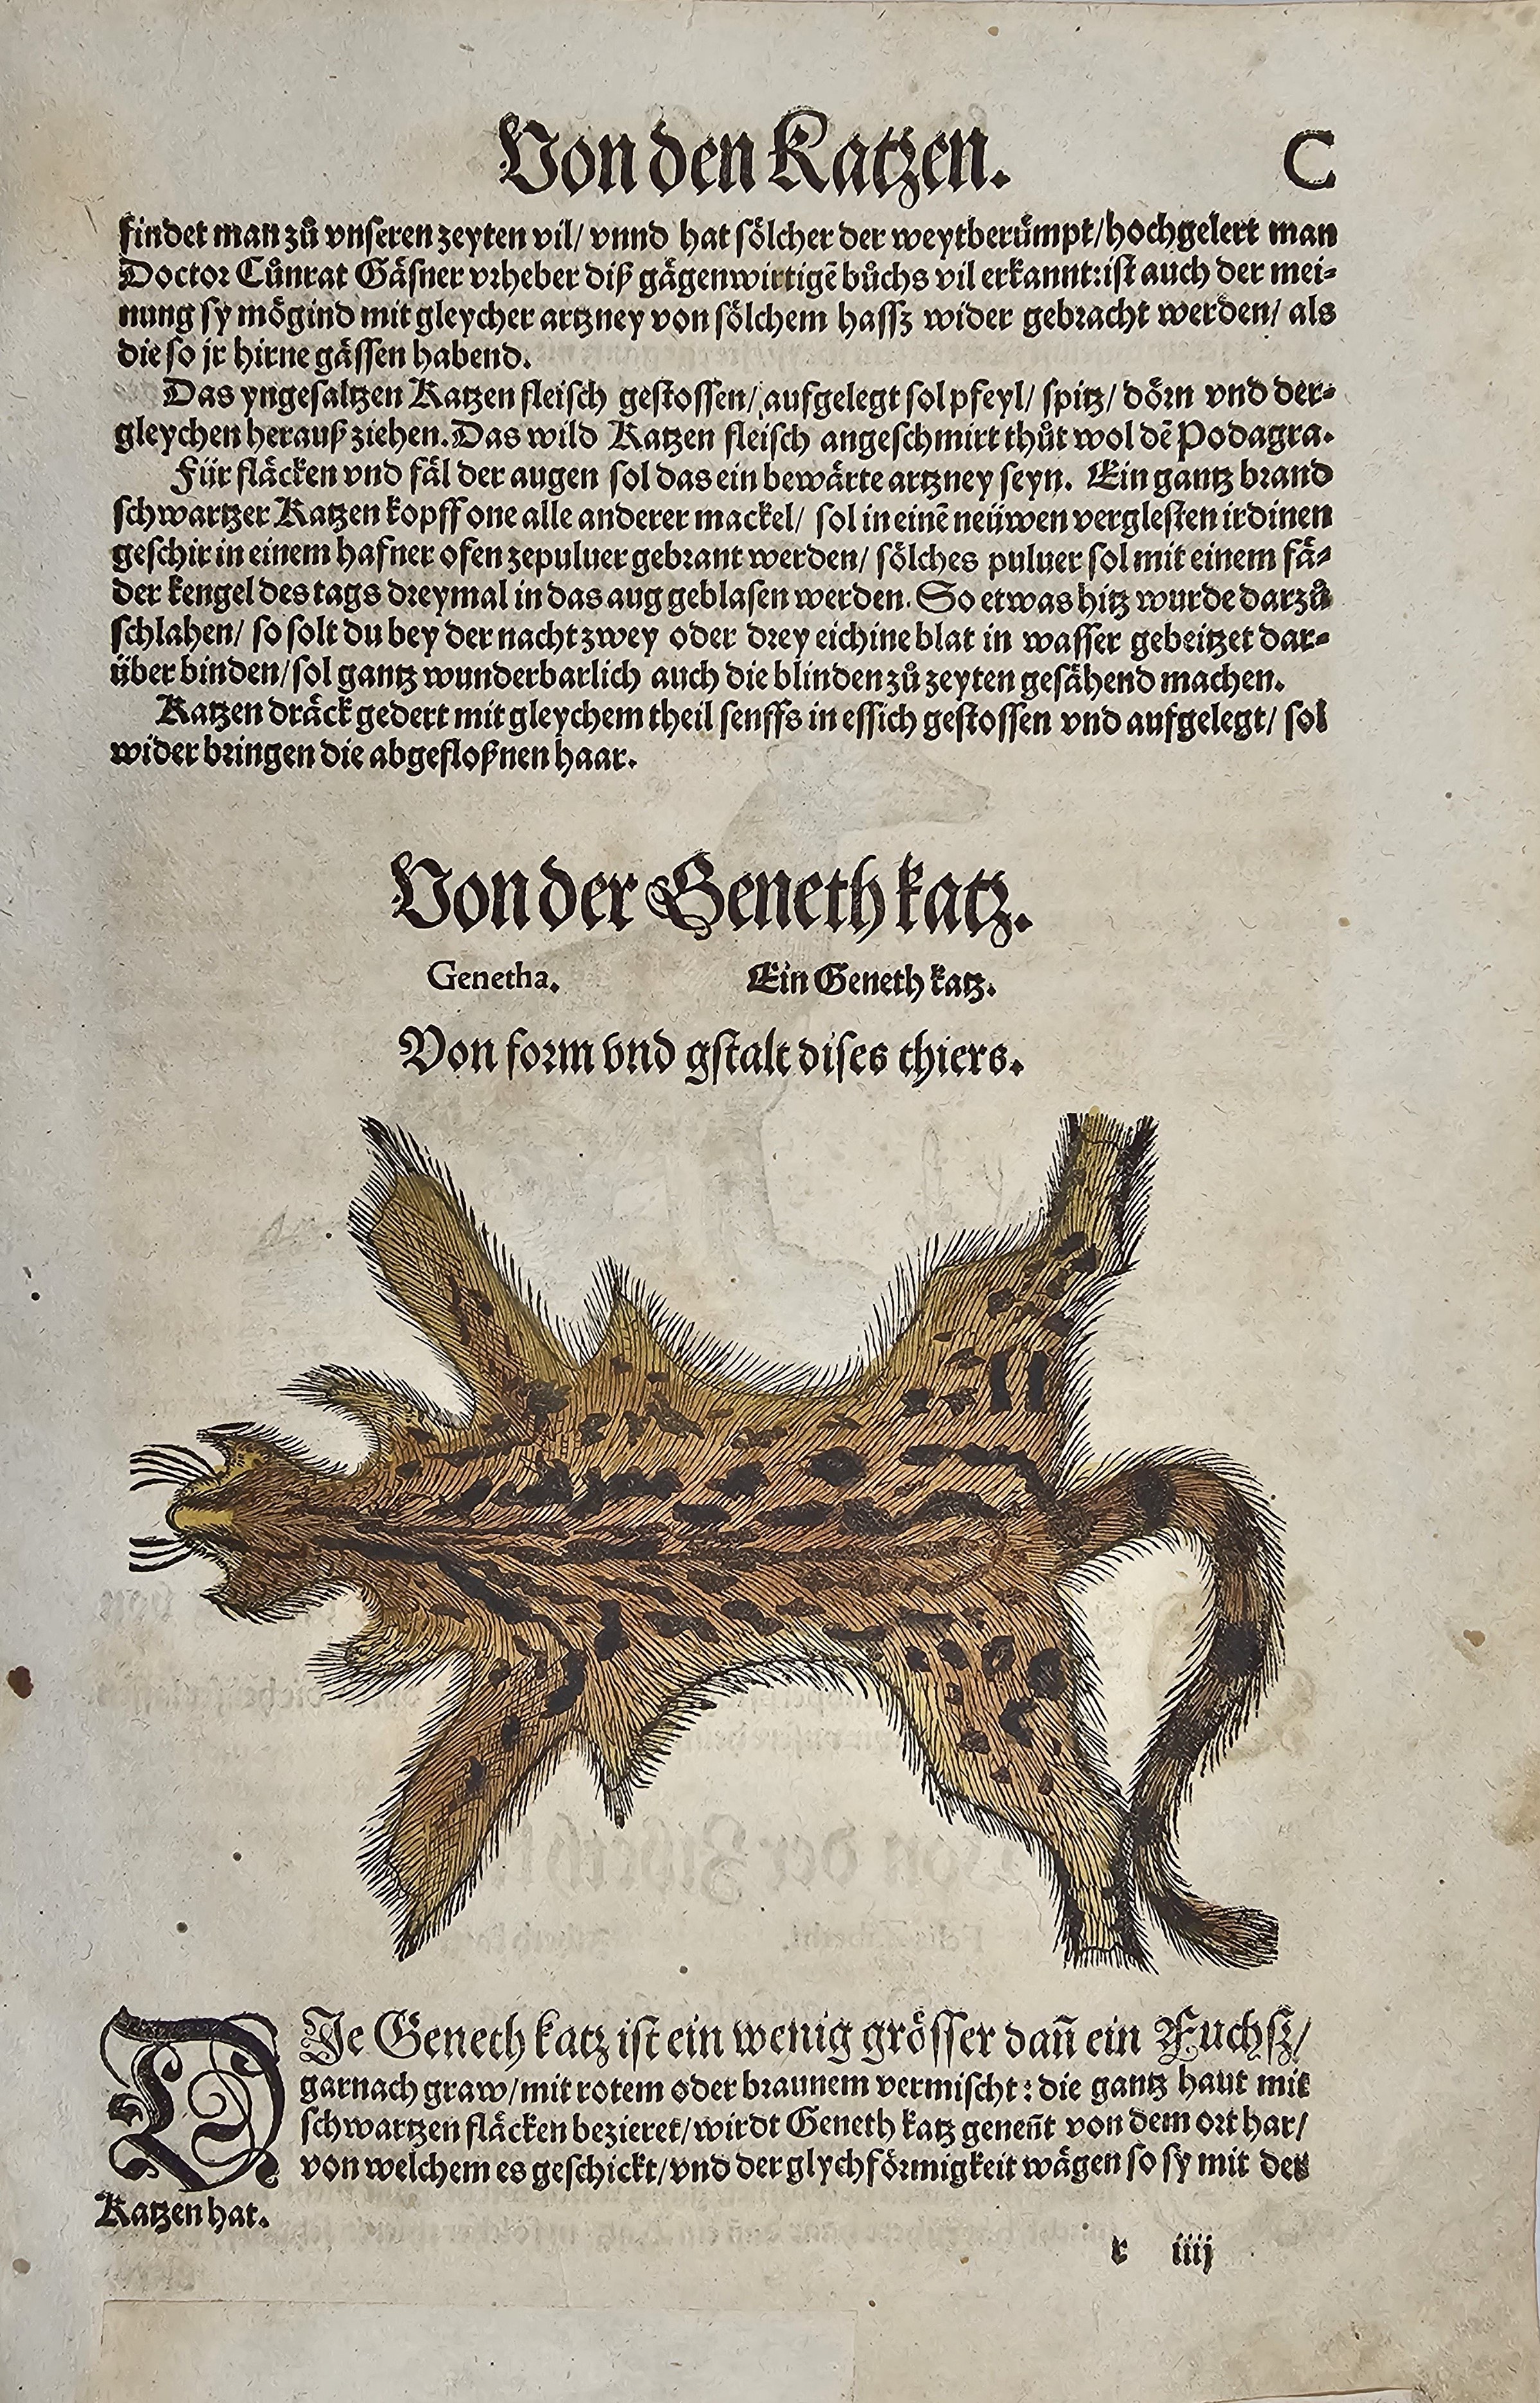 Von den Katzen. C
findet man zů vnseren zeyten vil/ vnnd hat sölcher der weytberümpt/hochgelert man
Doctor Cůnrat Gäsner vrheber diß gägenwirtigẽ bůchs vil erkannt:ist auch der mei-
nung sy mögind mit gleycher artzney von sölchem hassz wider gebracht werden/ als
die so jr hirne gässen habend.
Das yngesaltzen Katzen fleisch gestossen/ aufgelegt sol pfeyl/ spitz/ dörn vnd der-
gleychen herauß ziehen. Das wild Katzen fleisch angeschmirt thůt wol dẽ Podagra.
Für fläcken vnd fäl der augen sol das ein bewärte artzney seyn. Ein gantz brand
schwartzer Katzen kopff one alle anderer mackel/ sol in einẽ neüwen verglesten irdinen
geschir in einem hafner ofen zepuluer gebrant werden/ sölches puluer sol mit einem fä-
der kengel des tags dreymal in das aug geblasen werden. So etwas hitz wurde darzů
schlahen/ so solt du bey der nacht zwey oder drey eichine blat in wasser gebeitzet dar-
über binden/sol gantz wunderbarlich auch die blinden zů zeyten gesähend machen.
Katzen dräck gedert mit gleychem theil senffs in essich gestossen vnd aufgelegt/ sol
wider bringen die abgefloßnen haar.
Von der Geneth katz.
Genetha. Ein Geneth katz.
Von form vnd gstalt dises thiers.
DJe Geneth katz ist ein wenig grösser dañ ein Fuchsz/
garnach graw/mit rotem oder braunem vermischt: die gantz haut mit
schwartzen fläcken bezieret/wirdt Geneth katz genent̃ von dem ort har/
von welchem es geschickt/vnd der glychförmigkeit wägen so sy mit der
Katzen hat.
r iiij